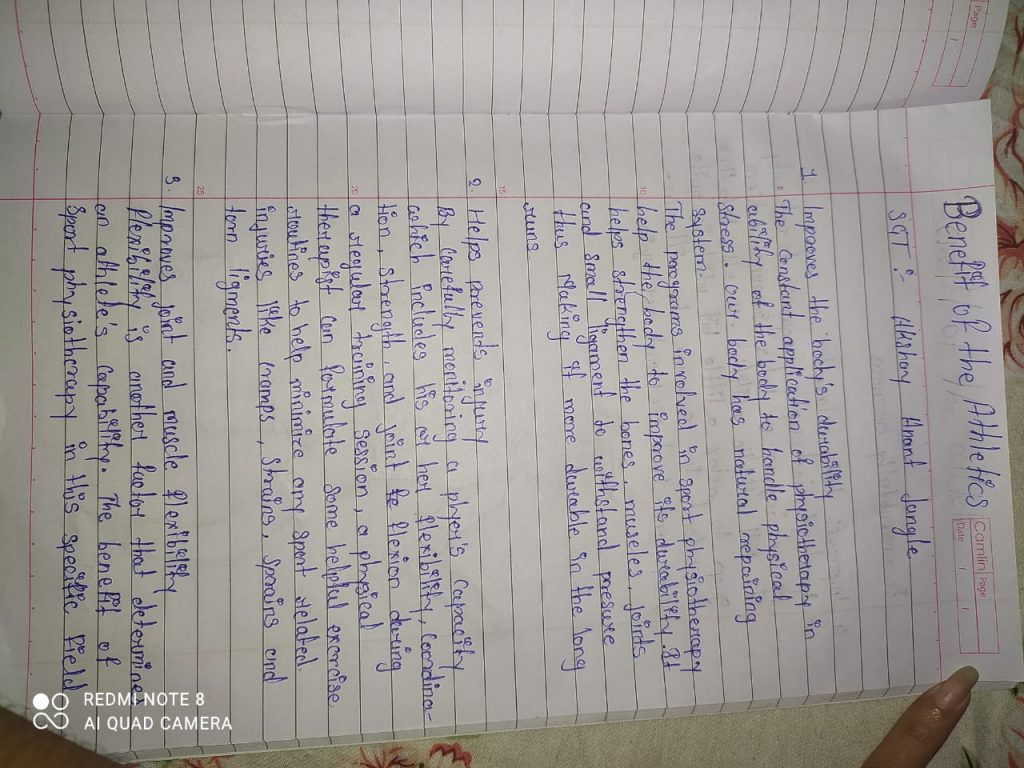 Benefit of the Athletics
Camlin Page
Date
SGT :- Akshay Anant Jangle
1. Improves the body's durability
The constant application of physiotherapy in
ability of the body to handle physical
stress. our body has natural repairing
system.
The programs involved in sport physiotherapy
help the body to improve its durability. It
helps strengthen the bones, muscles, joints
and small ligment to withstand presure
thus Making it more durable in the long
runs
2. Helps prevents injury
By carefully monitoring a player's capacity
which includes his or her flexibility, coordina-
tion, strength and joint flexion during
a regular training session, a physical
therepist can formulate some helpful exercise
routines to help minimize any sport related
injuries like cramps, strains, sprains and
torn ligments.
3. Improves joint and muscle flexibility
Flexibility is another factor that determines
an athlete's capability. The benefit of
sport physiothrapy in this specific field
5
10
15
20
25
Page
REDMI NOTE 8
AI QUAD CAMERA